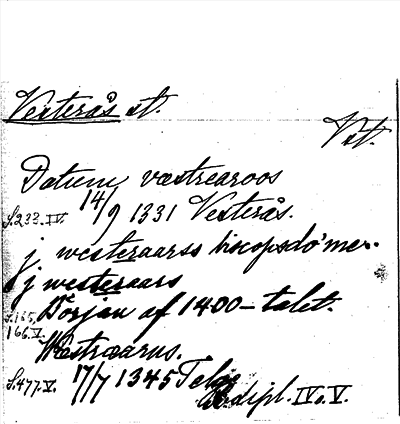 Vesterås st.
Vst.
Datum væstrearoos
S.233.IV. 14/9 1331 Vesterås.
j westeraarss biscopsdømer.
j westeraars
S.165, 166.V. Början af 1400-talet.
Westrærus.
S.477.V. 17/7 1345 Telge
Sv. dipl. IV o. V.